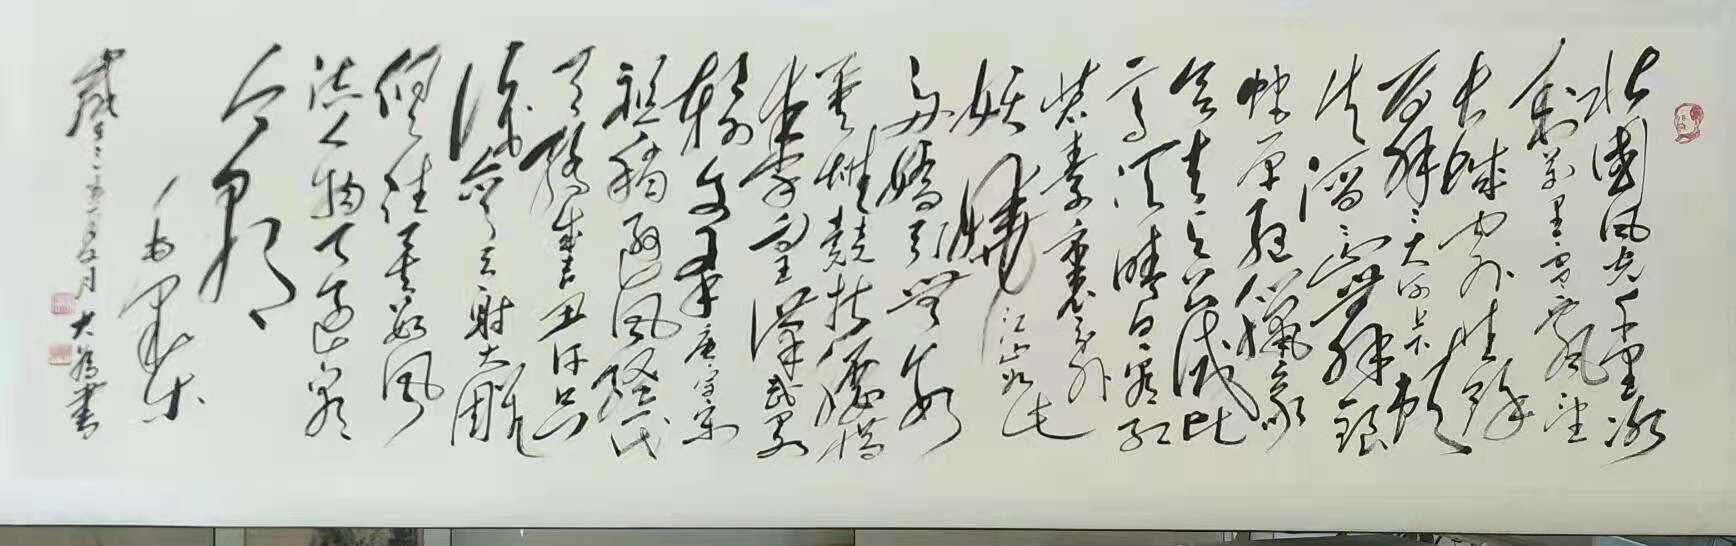 北國风光千里冰
封万里雪飘望
长城内外惟馀
莽莽大河上下顿
失滔滔山舞银
蛇原驰蜡象
欲与天公试比
高须晴日看红
装素裹分外
妖娆江山如此
多娇引无数
英雄竞折腰惜
秦皇汉武略
输文采唐宗宋
祖稍逊风骚一代
天骄成吉思汗只
识弯弓射大雕
俱往矣数风
流人物还看
今朝
月大为書